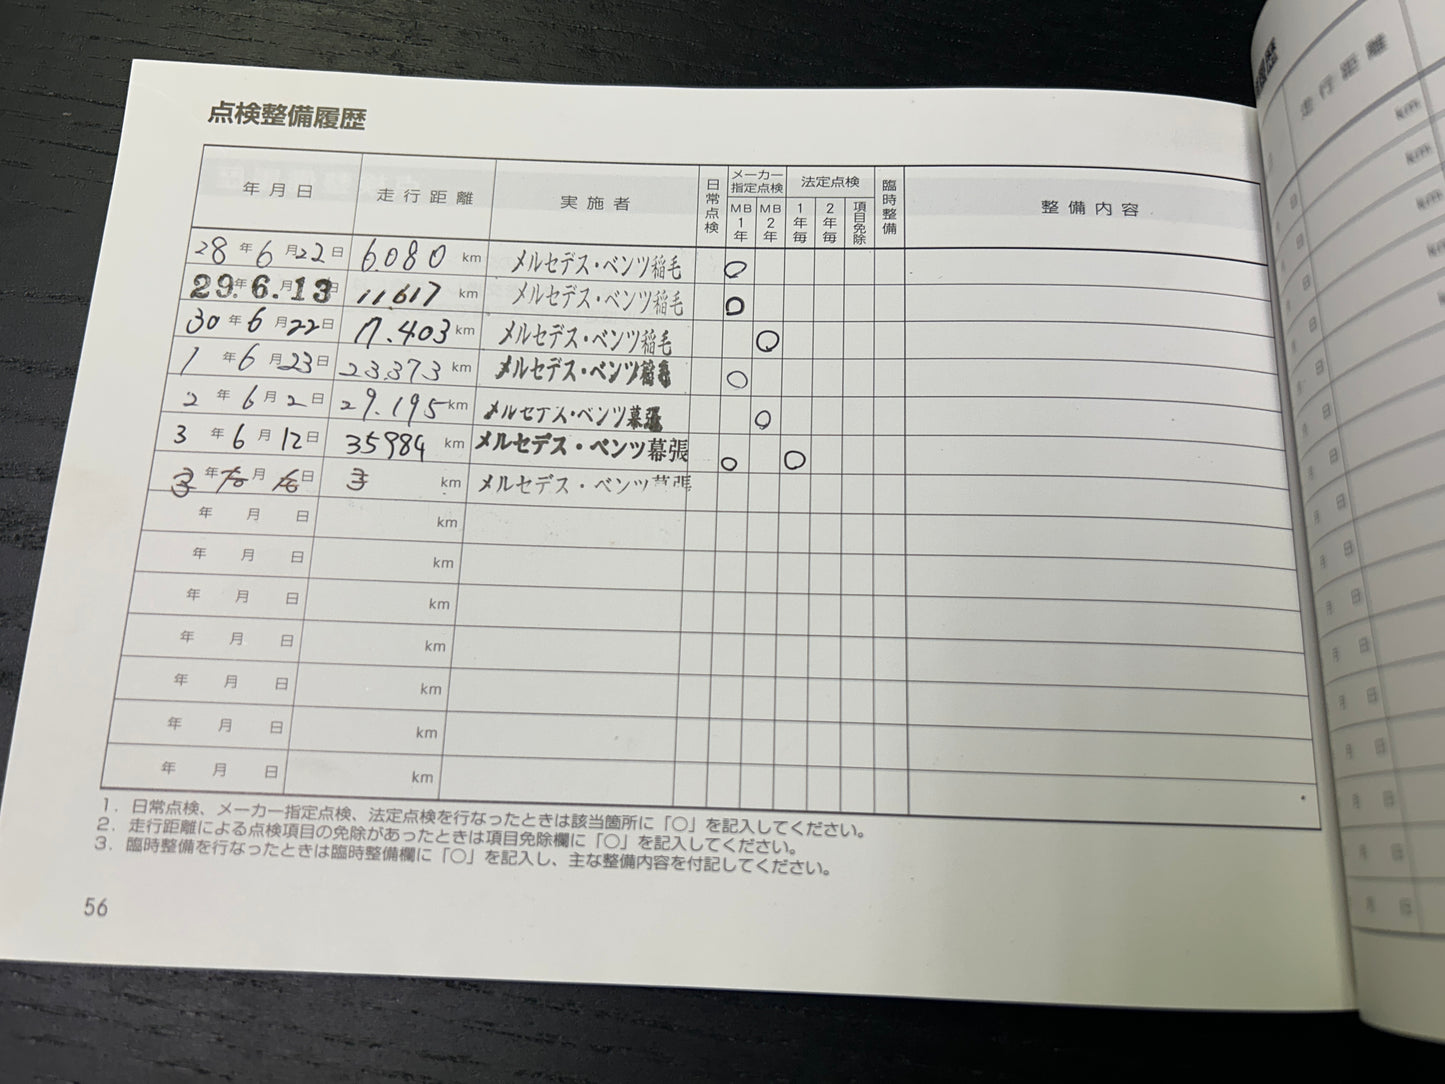 点検整備履歴
年月日 走行距離 実施者 日常点検 メーカー指定点検 MB1年 MB2年 法定点検 1年毎 2年毎 項目免除 臨時整備 整備内容
28年6月22日 6080km メルセデス・ベンツ稲毛 ○
29年6月13日 11617km メルセデス・ベンツ稲毛 ○
30年6月22日 17.403km メルセデス・ベンツ稲毛 ○
1年6月23日 23.373km メルセデス・ベンツ稲毛 ○
2年6月2日 29.195km メルセデス・ベンツ幕張 ○
3年6月12日 35984km メルセデス・ベンツ幕張 ○ ○
3年 月 日 3 km メルセデス・ベンツ幕張
年 月 日 km
年 月 日 km
年 月 日 km
年 月 日 km
年 月 日 km
年 月 日 km
年 月 日 km
1. 日常点検、メーカー指定点検、法定点検を行なったときは該当箇所に「○」を記入してください。
2. 走行距離による点検項目の免除があったときは項目免除欄に「○」を記入してください。
3. 臨時整備を行なったときは臨時整備欄に「○」を記入し、主な整備内容を付記してください。
56
走行距離
km
km
km